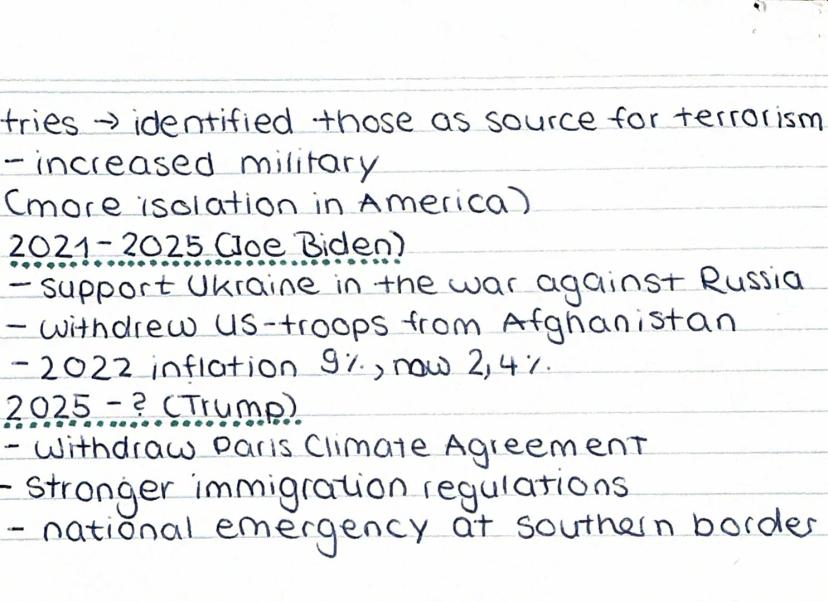 tries → identified those as source for terrorism
- increased military
(more isolation in America)
2021-2025 (Joe Biden)
- support Ukraine in the war against Russia
- withdrew US-troops from Afghanistan
- 2022 inflation 9%, now 2,4%.
2025 - ? (Trump)
- Withdraw Paris Climate Agreement
- stronger immigration regulations
- national emergency at southern border